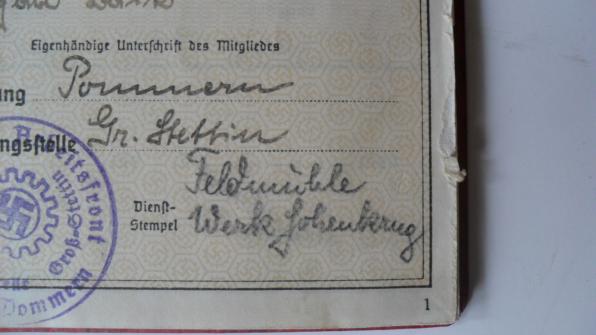 Eigenhändige Unterschrift des Mitgliedes
ung Pommern
ngsstelle Gr. Stettin
Feldmühle
Dienst-
Stempel Werk Hohenkrug
Arbeitsfront
Groß-Stettin
Pommern
1